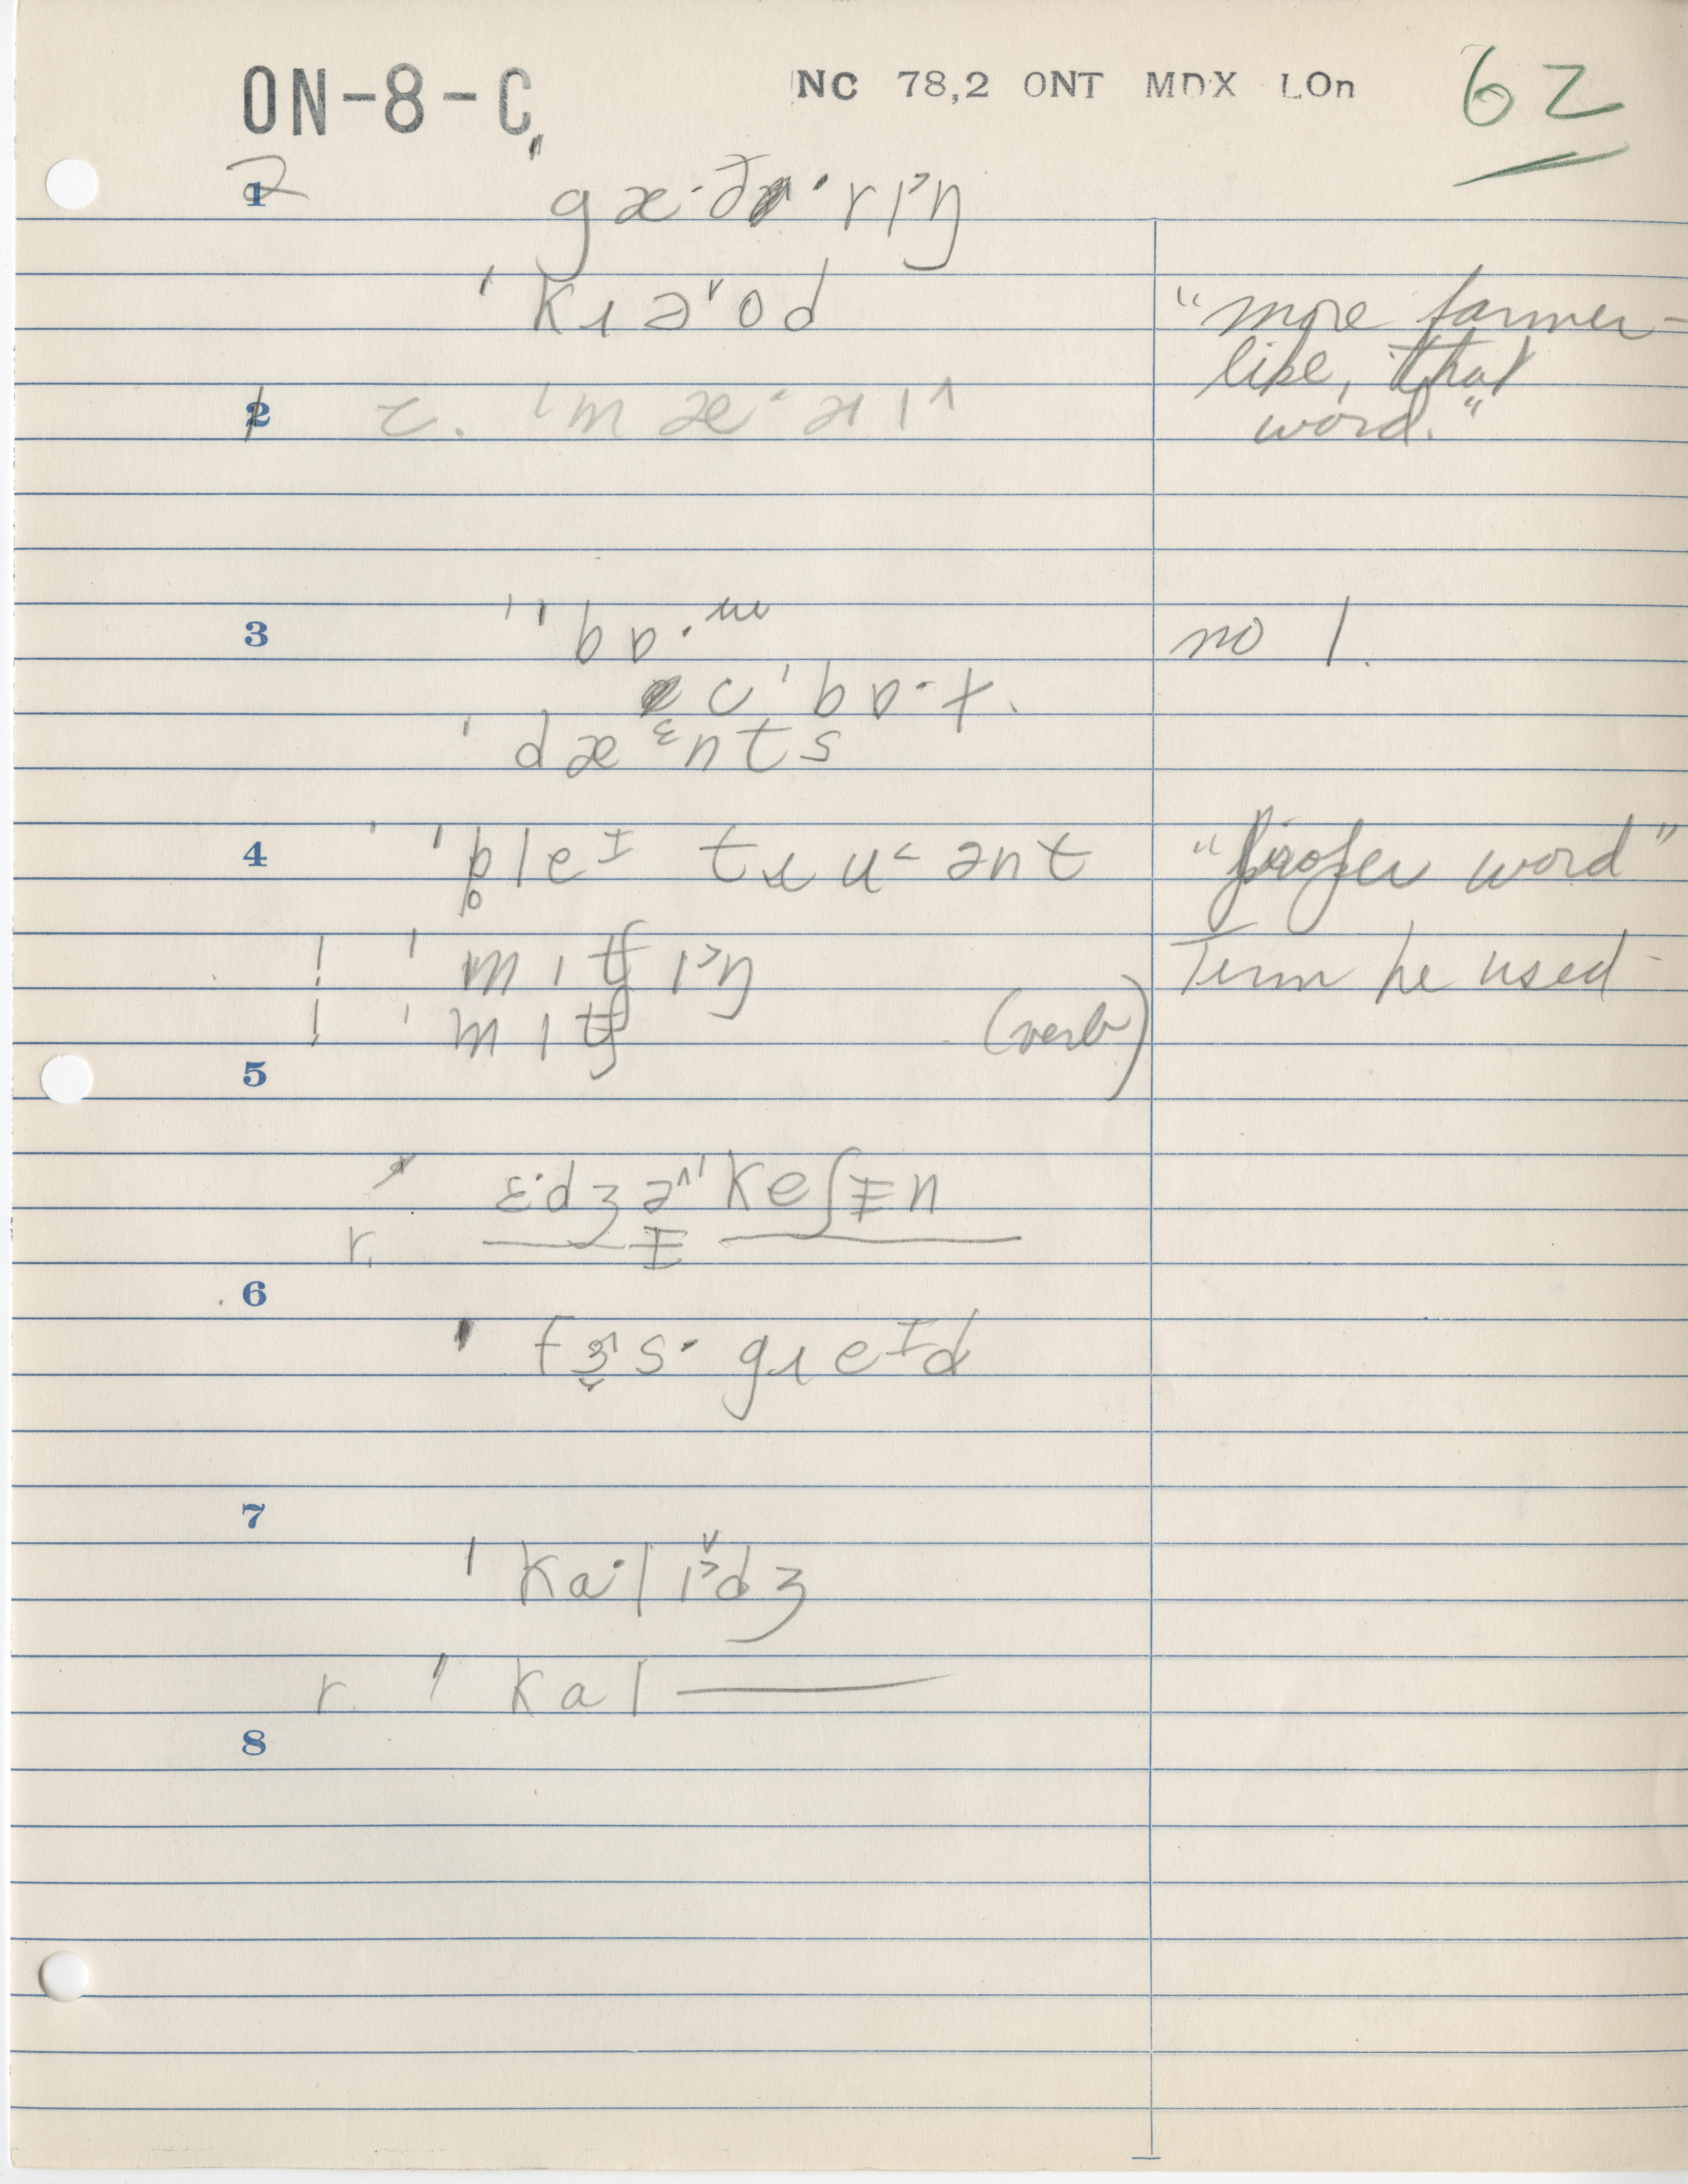 ON-8-C
NC 78,2 ONT MDX LOn
62
1 2 gæ·ðɚ·rɪ˃ŋ
ˈkɹə˅od
"more farmer-
like, that
word."
2 1 c. ˈmæ·ɹɪ^
3 ˈˈbɒ·m
no l.
əˈbɒ·t
ˈdæᵋnts
4 ˈp̥leᴵ tɹuˑ ənt
"proper word"
! ˈmɪtʃɪ˃ŋ
Term he used -
! ˈmɪtʃ
(verb)
5
ɛ·dʒəˈkeʃɪn
r. ɪ
6
ˈfɝs·gɹeᴵd
7
ˈkɑ·lɪ˃dʒ
r. ˈkɑl
8